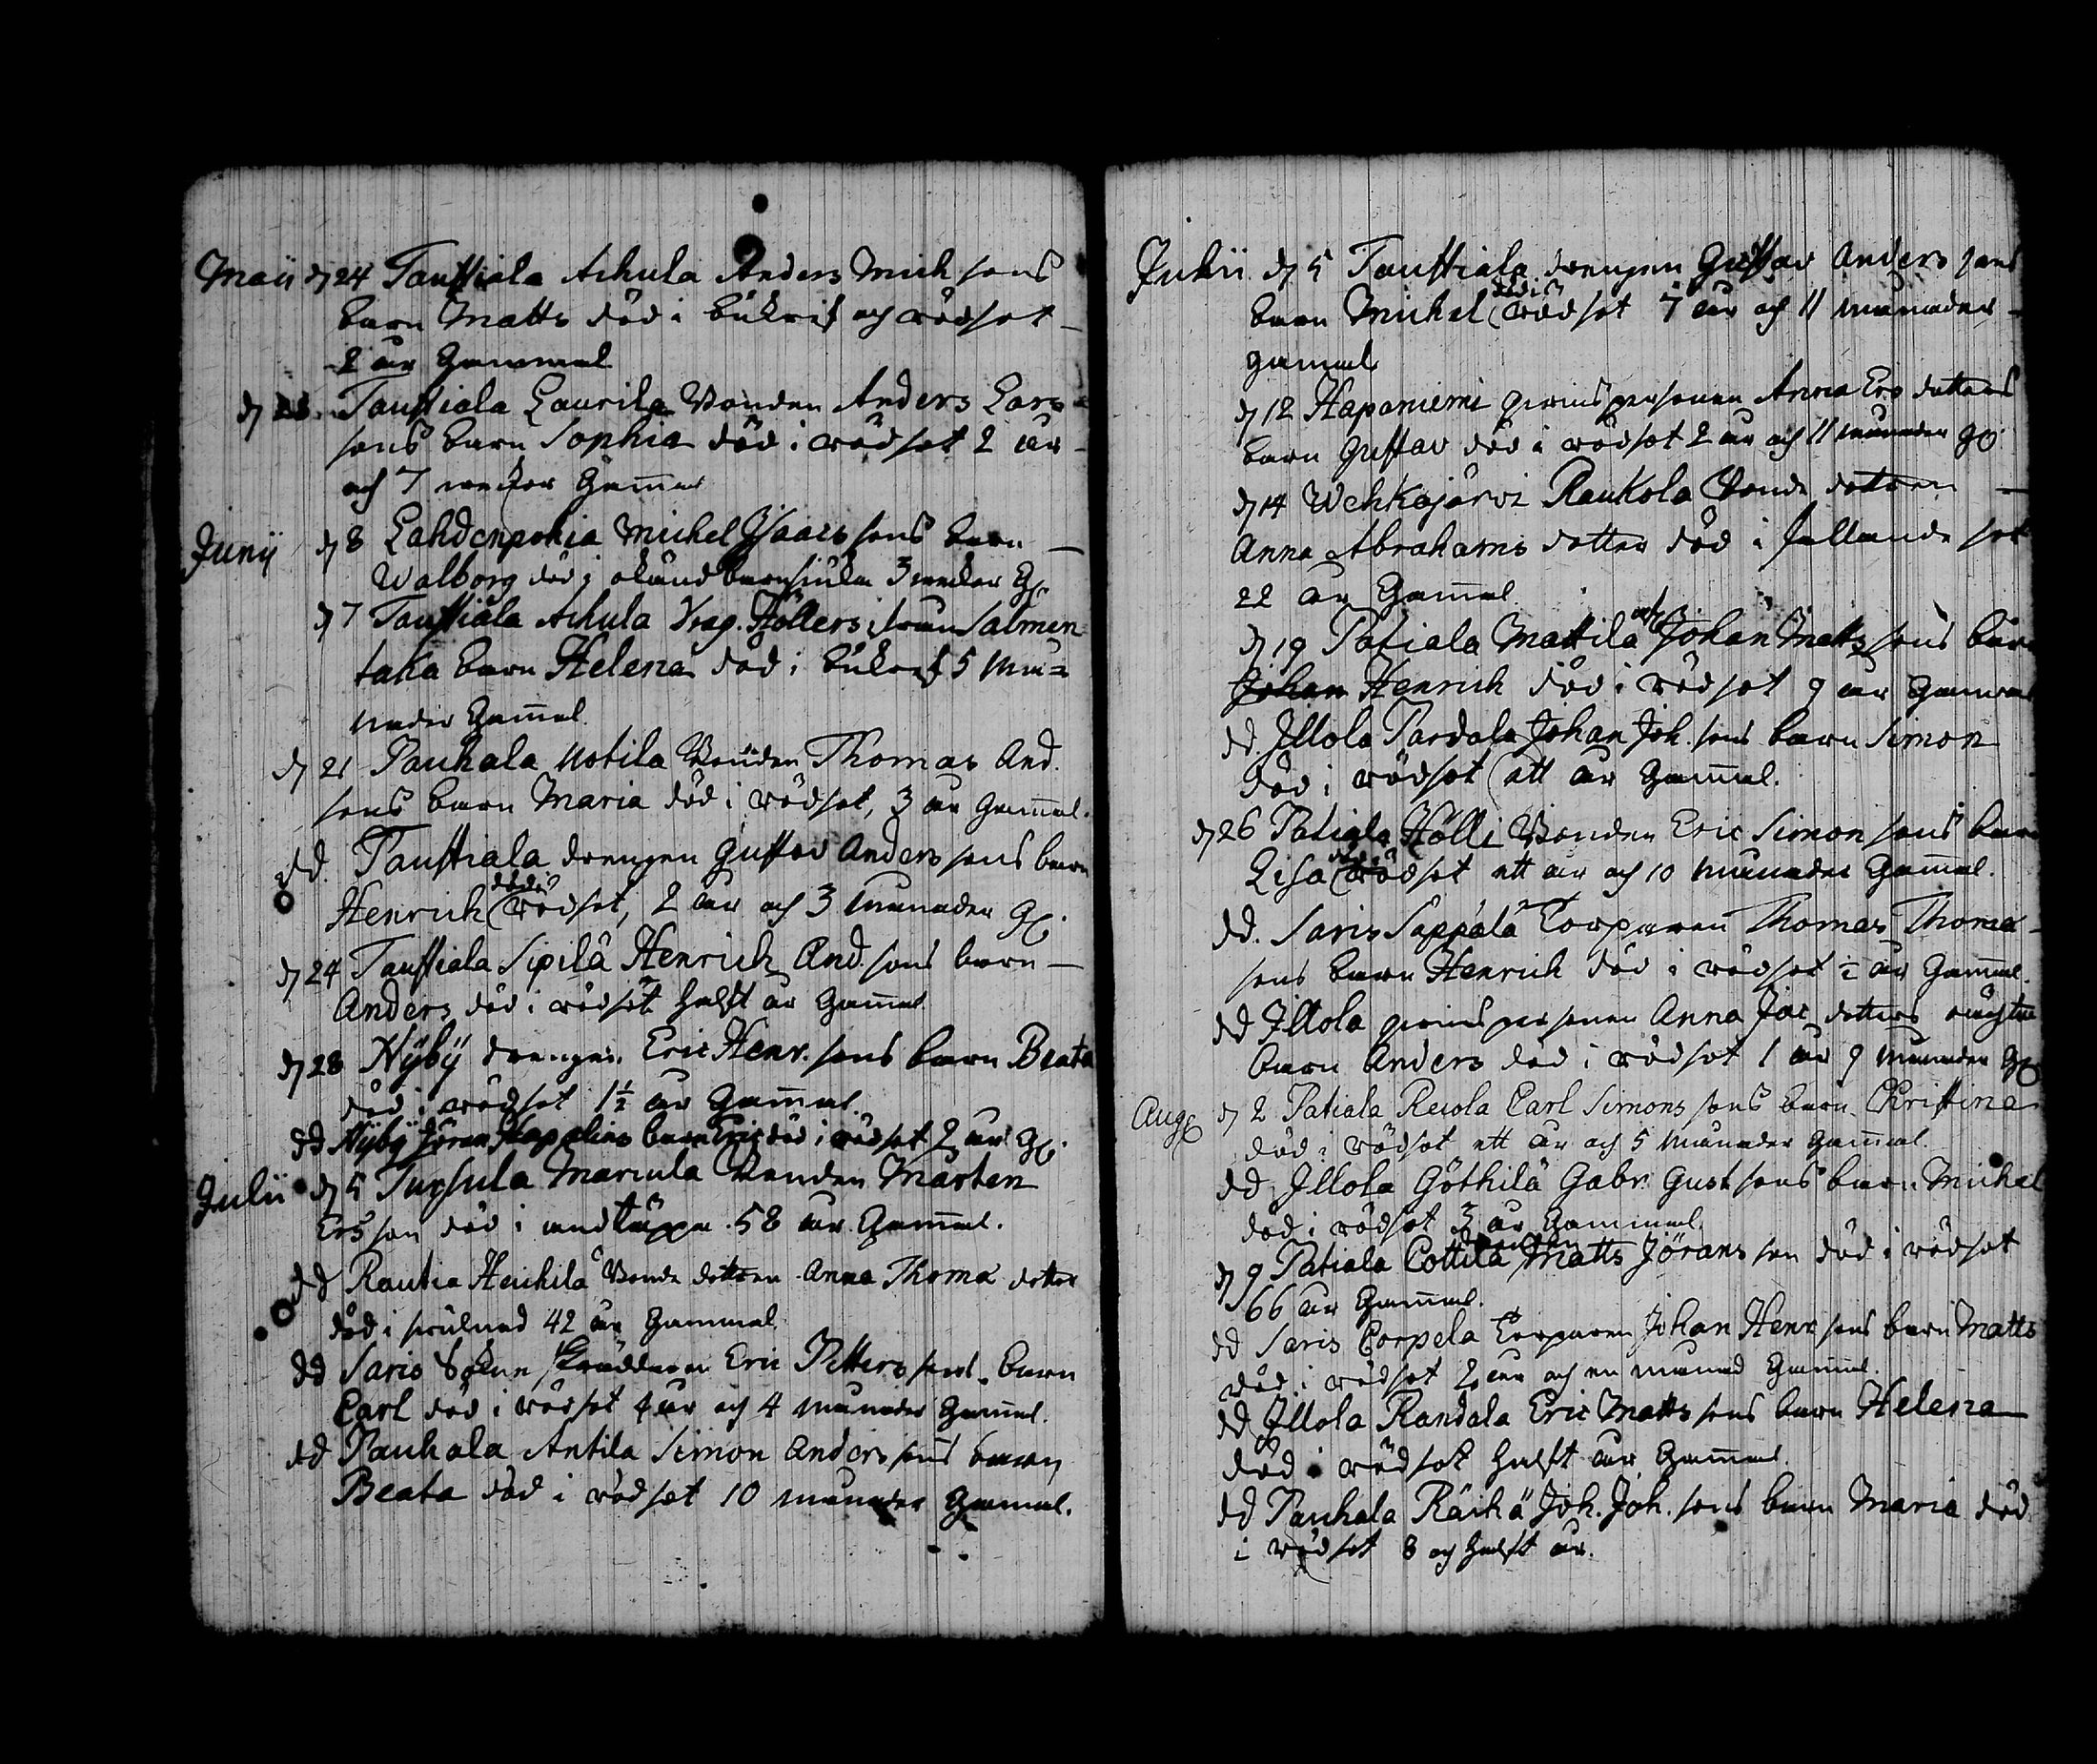 Maii d 24 Taustiala Achula Anders Mich sons
barn Matts död i bukref och rödsot
2 år Gammal
d Taustiala Laurila Bonden Anders Lars
sons barn Sophia död i rödsot 2 år
och 7 weckor Gamal
Junij d 8 Lahdenpohia Michel Isaacs sons barn
Walborg död i okänd barnsiuka 3 weckor Gl.
d 7 Taustiala Achula Drag. Höllers från Salmen
taka barn Helena död i bukref 5 må=
nader Gamal
d 21 Pauhala Uotila Bonden Thomas And.
sons barn Maria död i rödsot, 3 år Gamal.
dd. Taustiala drengen Gustav Anders sons barn
Henrich död i rödsot, 2 år och 3 månader Gl.
d 24 Taustiala Sipilä Henrich And. sons barn
Anders död i rödsot halft år Gamal
d 28 Nÿbÿ drengen Eric Henr. sons barn Beata
död i rödsot 1½ år Gamal.
dd Nÿbÿ Jöran barn Eric död i rödsot 2 år Gl.
Julii d 5 Tursula Marcula Bonden Marten
Ers son död i andtäppa 58 år Gamal.
dd Rautia Heichilä Bonde dottren Anna Thoma dotter
död i 42 år Gammal
dd Saris Sokn Skräddaren Eric Petters sons barn
Carl död i rödsot 4 år och 4 månader Gamal.
dd Pauhala Antila Simon Anders sons barn
Beata död i rödsot 10 månader Gamal.
Julii d 5 Taustiala drengen Gustav Anders sons
barn Michel död i rödsot 7 år och 11 månader
gamal
d 12 Haponiemi qwinspersonen Anna Ers dotters
barn Gustav död i rödsot 2 år och 11 månader Gl.
d 14 Wehkajärvi Raukola Bonde dottren
Anna Abrahams dotter död i fallande sot
22 år Gamal
d 19 Patiala Mattila Johan Matts sons barn
Johan Henrich död i rödsot 9 år Gammal
dd. Illola Pardala Johan Joh. sons barn Simon
död i rödsot ett år Gamal.
d 26 Patiala Hölli Bonden Eric Simon sons barn
Lisa död i rödsot ett år och 10 månader Gamal.
dd. Saris Sappälä Torparen Thomas Thoma
sons barn Henrich död i rödsot ½ år Gamal.
dd Illola qwinspersonen Anna Jac dotters oächta
barn Anders död i rödsot 1 år 9 månader Gl
Aug d 2 Patiala Reiola Carl Simons sons barn Christina
död i rödsot ett år och 5 månader Gamal.
dd Illola Göthilä Gabr. Gust sons barn Michel
död i rödsot 3 år Gammal.
d 9 Patiala Cottila Bonden Matts Jörans son död i rödsot
66 år Gamal.
dd Saris Corpela Torparen Johan Henr sons barn Matts
död i rödsot 2 år och en månad Gamal.
dd Illola Randala Eric Matts sons barn Helena
död i rödsot halft år Gamal.
dd Pauhala Räihä Joh. Joh. sons barn Maria död
i rödsot 8 och halft år.